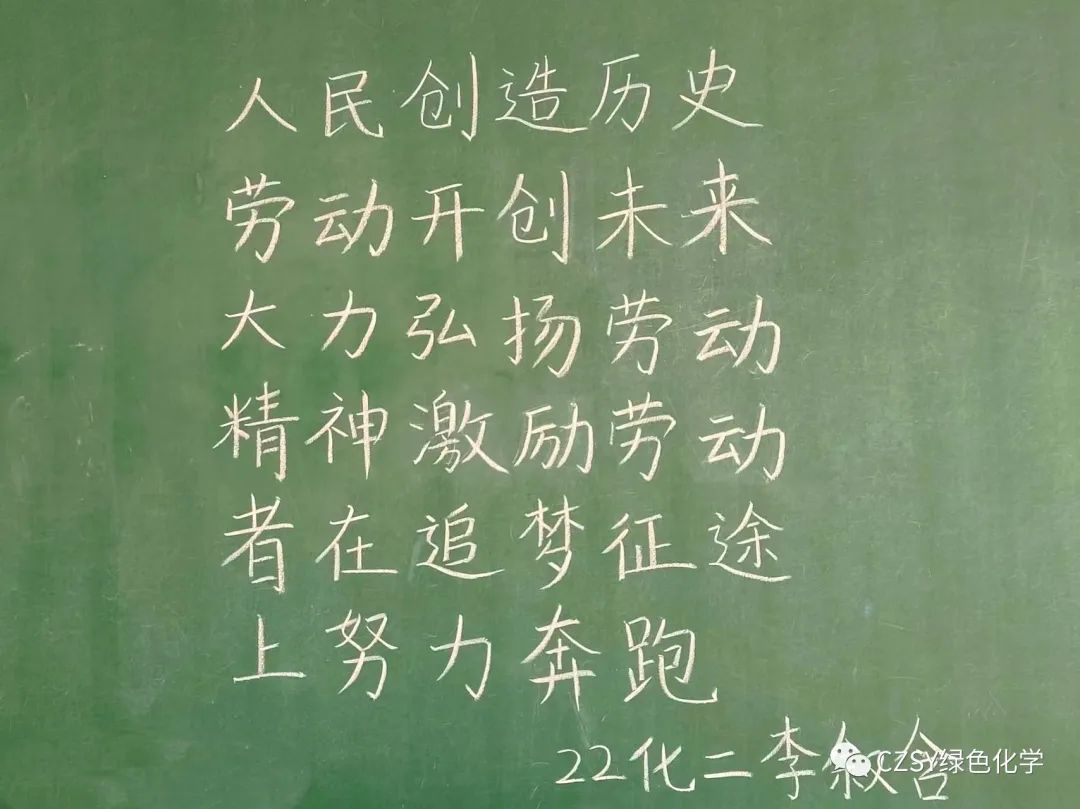 人民创造历史
劳动开创未来
大力弘扬劳动
精神激励劳动
者在追梦征途
上努力奔跑
22化二李叙含
CZSY绿色化学